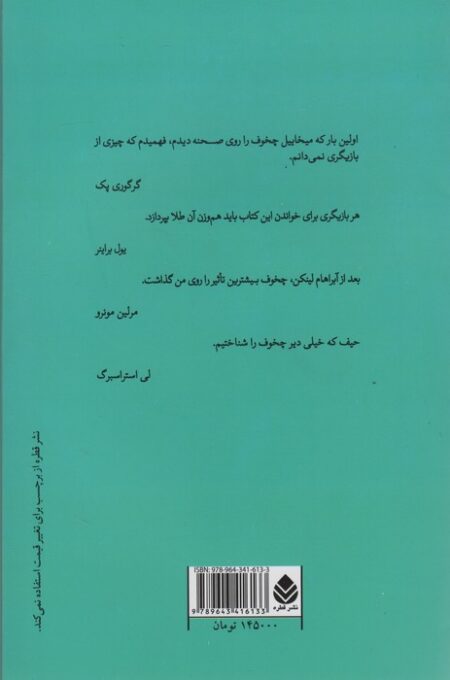 اولین بار که میخاییل چخوف را روی صحنه دیدم، فهمیدم که چیزی از
بازیگری نمی‌دانم.
گرگوری پک
هر بازیگری برای خواندن این کتاب باید هم‌وزن آن طلا بپردازد.
یول براینر
بعد از آبراهام لینکن، چخوف بیشترین تأثیر را روی من گذاشت.
مرلین مونرو
حیف که خیلی دیر چخوف را شناختیم.
لی استراسبرگ
نشر قطره از برچسب برای تغییر قیمت استفاده نمی‌کند.
ISBN: 978-964-341-613-3
9 789643 416133
نشر قطره
۱۴۵۰۰۰ تومان